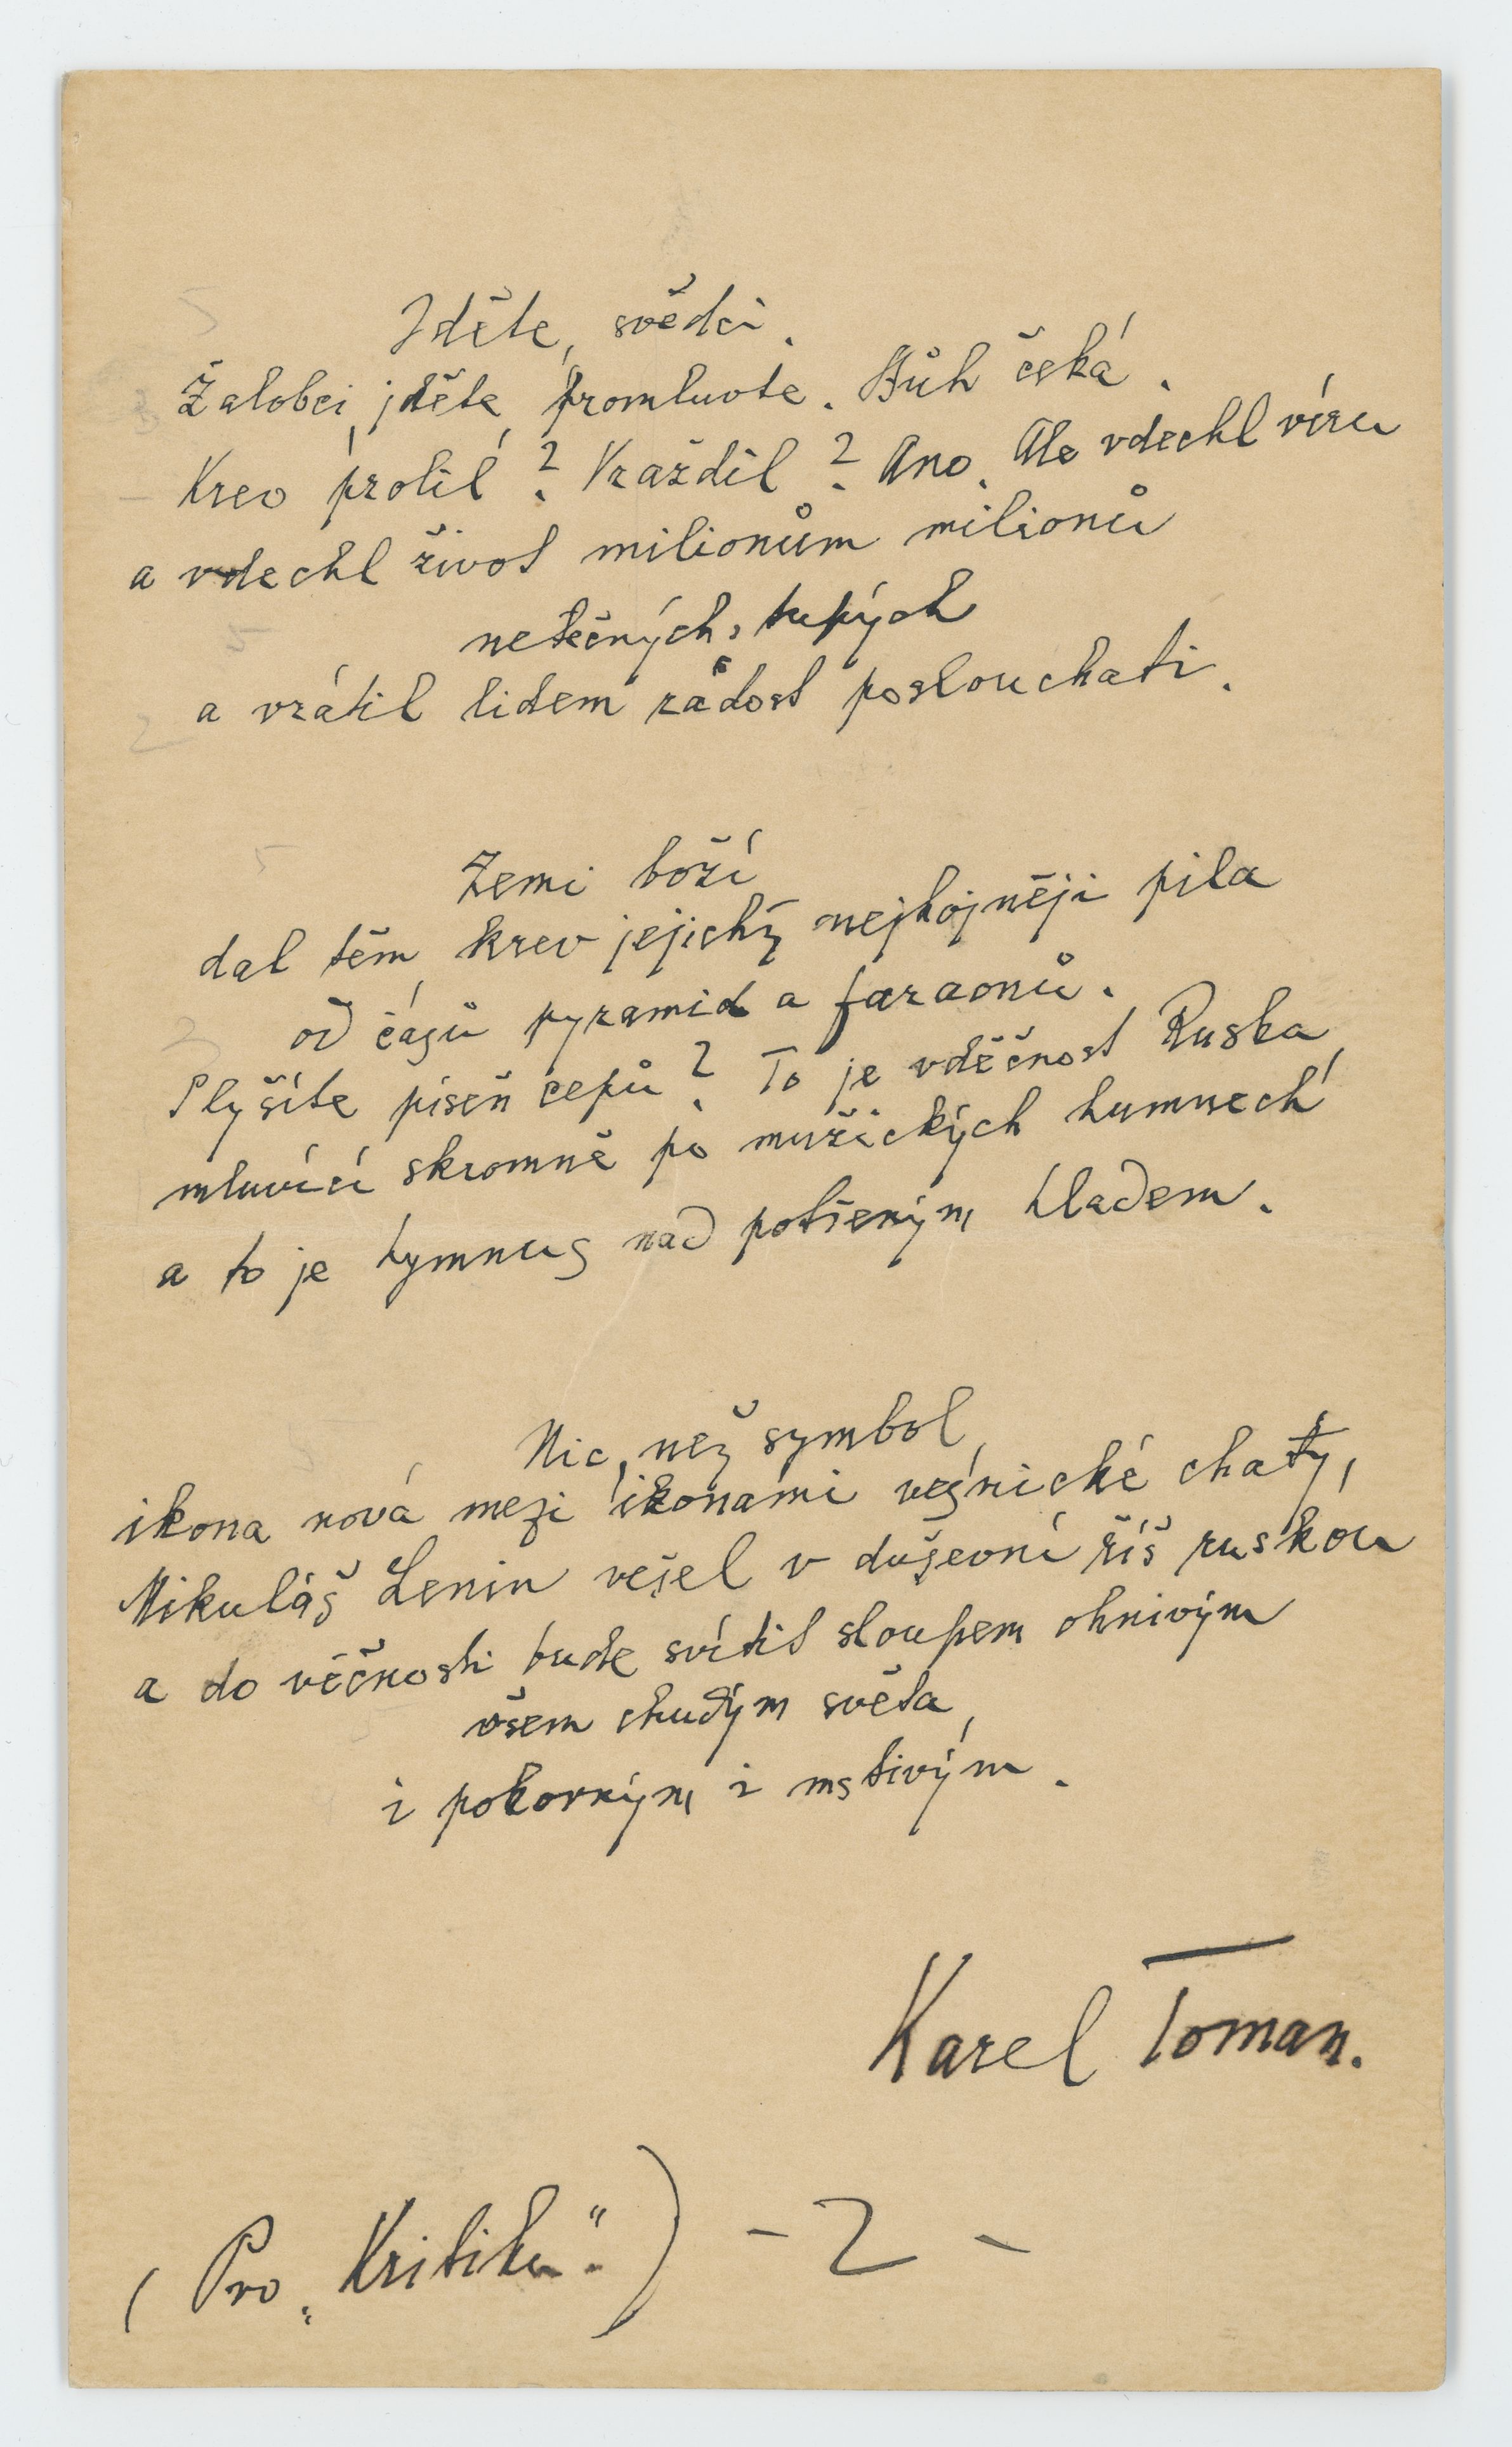 Jděte, svědci.
Žalobci, jděte, promluvte. Bůh čeká.
Krev prolil? Vraždil? Ano. Ale vdechl víru
a vdechl život milionům milionů
netečných, tupých
a vrátil lidem radost poslouchati.
Zemi boží
dal těm, krev jejichž nejhojněji pila
od časů pyramid a faraonů.
Slyšíte píseň cepů? To je vděčnost Ruska,
mluvící skromně po mužických humnech
a to je hymnus nad potřeným hladem.
Nic, než symbol,
ikona nová mezi ikonami vesnické chaty,
Mikuláš Lenin vešel v duševní říš ruskou
a do věčnosti bude svítit sloupem ohnivým
všem chudým světa,
i pokorným i mstivým.
Karel Toman.
(Pro „Kritiku“.) - 2 -